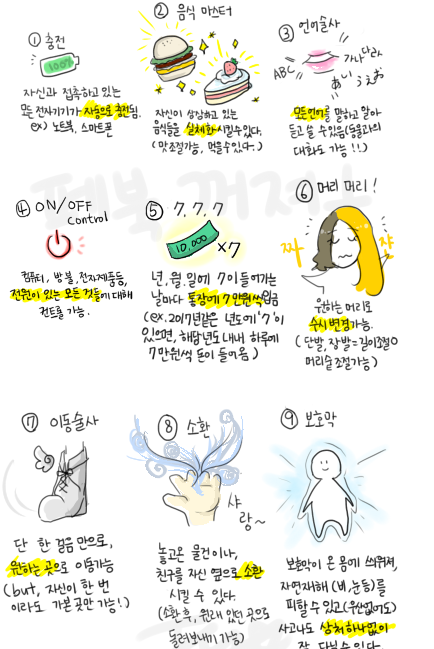 ① 충전
100%
자신과 접촉하고 있는
모든 전자기기가 자동으로 충전됨.
ex) 노트북, 스마트폰
② 음식 마스터
자신이 상상하고 있는
음식들을 실체화 시킬 수 있다.
(맛 조절가능, 먹을 수 있다.)
③ 언어술사
ABC
가나다라
あぃうぇお
모든 언어를 말하고 알아
듣고 쓸 수 있음(동물과의
대화도 가능!!)
④ ON/OFF
control
컴퓨터, 방 불, 전자제품등,
전원이 있는 모든 것들에 대해
컨트롤 가능.
⑤ 7, 7, 7
10,000
×7
년, 월, 일에 7이 들어가는
날마다 통장에 7만원씩 입금
(ex. 2017년같은 년도에 '7'이
있으면, 해당년도 내내 하루에
7만원씩 돈이 들어옴)
⑥ 머리 머리!
짜
쟌
원하는 머리로
수시 변경 가능.
(단발, 장발 = 길이조절 O
머리숱 조절가능)
⑦ 이동술사
단 한 걸음 만으로,
원하는 곳으로 이동가능
(but, 자신이 한 번
이라도 가본 곳만 가능!)
⑧ 소환
샤
랑~
놓고온 물건이나,
친구를 자신 옆으로 소환
시킬 수 있다.
(소환 후, 원래 있던 곳으로
돌려보내기 가능)
⑨ 보호막
보호막이 온 몸에 씌워져,
자연재해 (비, 눈 등)를
피할 수 있고 (우산없어도)
사고나도 상처하나없이